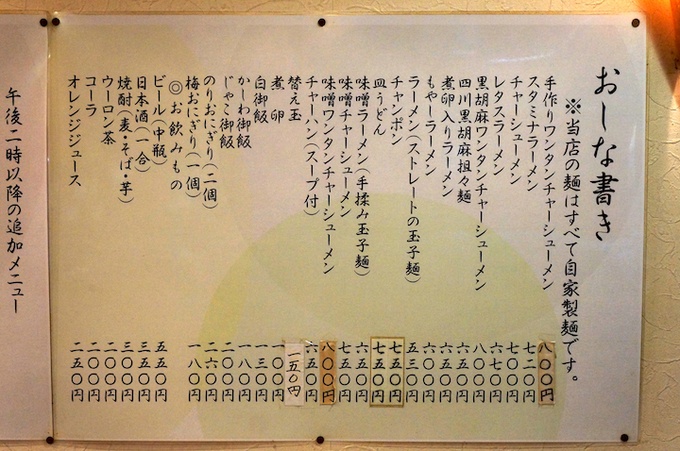 おしな書き
※当店の麺はすべて自家製麺です。
手作りワンタンチャーシューメン 八〇〇円
スタミナラーメン 七二〇円
チャーシューメン 七〇〇円
レタスラーメン 六七〇円
黒胡麻ワンタンチャーシューメン 八〇〇円
四川黒胡麻担々麺 六五〇円
煮卵入りラーメン 六五〇円
もやしラーメン 六〇〇円
ラーメン(ストレートの玉子麺) 五三〇円
チャンポン 七五〇円
皿うどん 七五〇円
味噌ラーメン(手揉み玉子麺) 六五〇円
味噌チャーシューメン 七五〇円
味噌ワンタンチャーシューメン 八〇〇円
チャーハン(スープ付) 六五〇円
替え玉 一五〇円
煮卵 一〇〇円
白御飯 一三〇円
かしわ御飯 一八〇円
じゃこ御飯 二〇〇円
のりおにぎり(二個) 二六〇円
梅おにぎり(一個) 一八〇円
◎お飲みもの
ビール(中瓶) 五五〇円
日本酒(一合) 三五〇円
焼酎(麦・そば・芋) 三〇〇円
ウーロン茶 二〇〇円
コーラ 二〇〇円
オレンジジュース 二五〇円
午後二時以降の追加メニュー